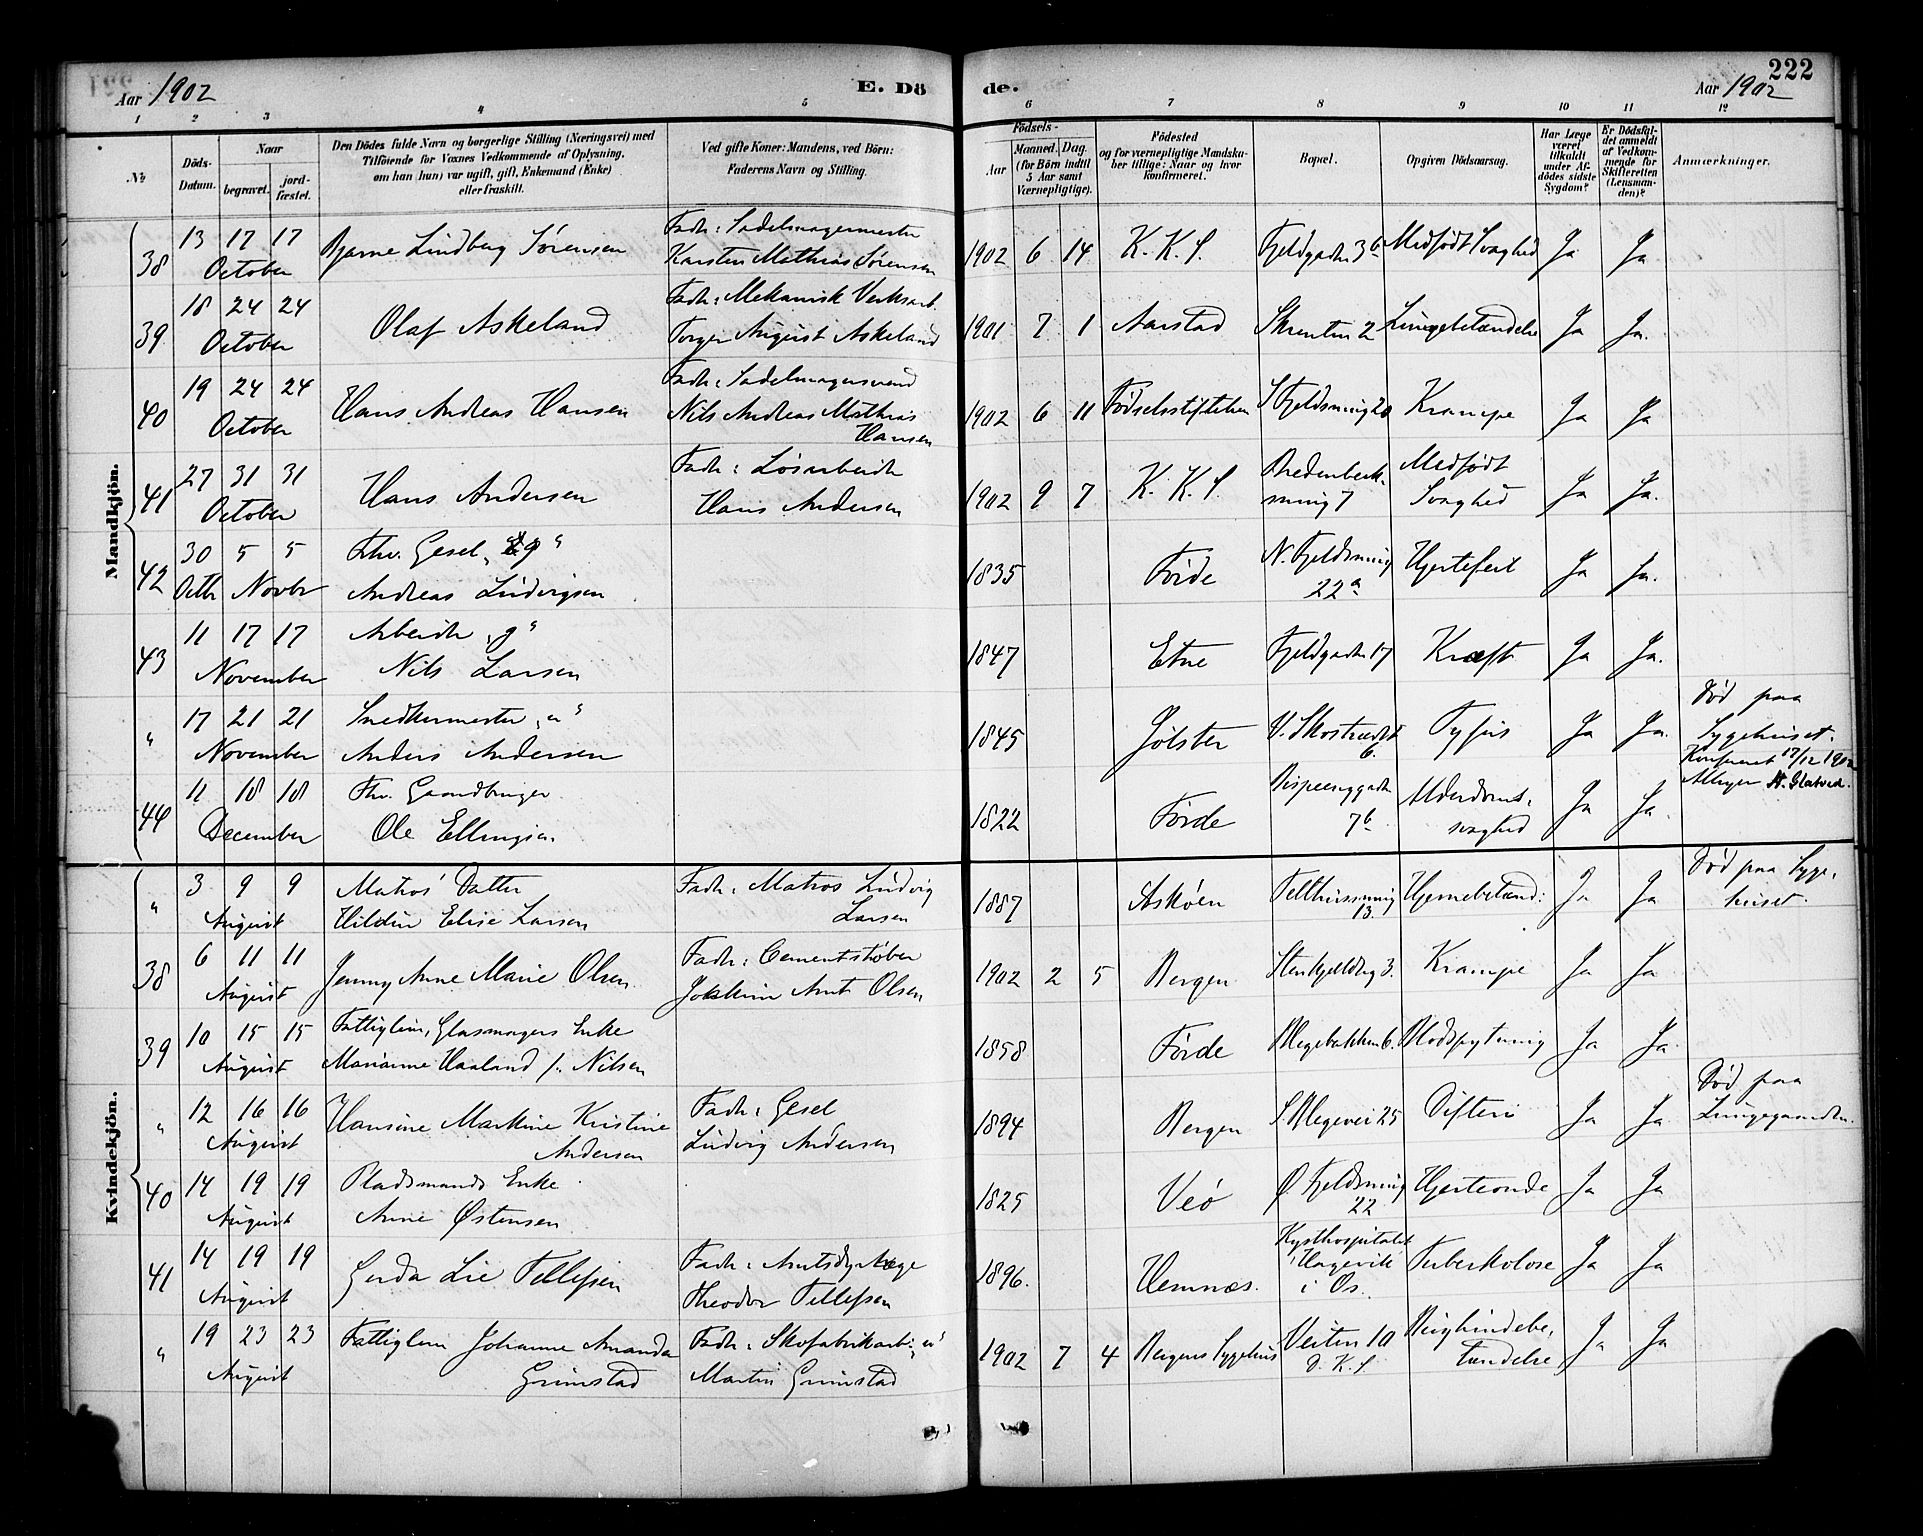 Aar 1902
E. Dö
de.
Aar 1902
222
1 2 3 4 5 6 7 8 9 10 11 12
№
Döds-
Datum.
Naar
begravet.
jord-
fæstet.
Den Dödes fulde Navn og borgerlige Stilling (Næringsvei) med
Tilföiende for Voxnes Vedkommende af Oplysning,
om han (hun) var ugift, gift, Enkemand (Enke)
eller fraskilt.
Ved gifte Koner: Mandens, ved Börn:
Faderens Navn og Stilling.
Födsels-
Aar
Maaned. Dag.
(for Börn indtil
5 Aar samt
Værnepligtige).
Födested
og for værnepligtige Mandska-
ber tillige: Naar og hvor
Konfirmeret.
Bopæl.
Opgiven Dödsaarsag.
Har Læge
været
tilkaldt
under Af-
dödes sidste
Sygdom?
Er Dödsfal-
det anmeldt
af Vedkom-
mende for
Skifteretten
(Lensman-
den)?
Anmærkninger.
Mandkjön.
38 13 17 17
October
Bjarne Lindberg Sörensen
Fadr: Sadelmagermester
Karsten Mathias Sörensen
1902 6 14 K. K. S. Fjeldgaden 3b Medfödt Svaghed Ja Ja
39 18 24 24
October
Olaf Askeland
Fadr: Mekanisk Verksarb.
Torger August Askeland
1901 7 1 Aarstad Skrenten 2 Lungebetændelse Ja Ja.
40 19 24 24
October
Hans Andreas Hansen
Fadr: Sadelmagersvend
Nils Andreas Mathias
Hansen
1902 6 11 Födselsstiftelsen S Fjeldsmug 20 Krampe Ja Ja
41 27 31 31
October
Hans Andersen
Fadr: Lösarbeidr
Hans Andersen
1902 9 7 K. K. S. Bredenbecks-
smug 7
Medfödt
Svaghed
Ja Ja.
42 30 5 5
Octbr Novbr
Fhv. Gesel „g“
Andreas Ludvigsen
1835 Förde N. Fjeldsmug
22a
Hjertefeil Ja Ja.
43 11 17 17
November
Arbeidr „g“
Nils Larsen
1847 Etne Fjeldgaden 17 Kræft Ja Ja.
" 17 21 21
November
Snedkermester „e“
Anders Andersen
1845 Jölster V. Skostrædet
6.
Tyfus Ja Ja.
Död paa
Sygehuset.
17/12 1902
44 11 18 18
December
Fhv. Gaardbruger
Ole Ellingsen.
1822 Förde
7b
Alderdoms-
svaghed
Ja Ja.
Kvindekjön.
" 3 9 9
August
Matros' Datter
Hildur Elise Larsen
Fadr: Matros Ludvig
Larsen
1887 Askøen Telthussmug
13.
Hjernebetænd: Ja Ja
Död paa Syge-
huset.
38 6 11 11
August
Jenny Anne Marie Olsen
Fadr: Cementstøber
Jokkim Arnt Olsen
1902 2 5 Bergen Stenkjeldrg 3. Krampe Ja Ja
39 10 15 15
August
Fattiglem, Glasmagers Enke
Marianne Haaland f. Nilsen
1858 Förde Blegebakken 6. Blodspytning Ja Ja.
" 12 16 16
August
Hansine Martine Kristine
Andersen
Fadr: Gesel
Ludvig Andersen
1894 Bergen S. Blegevei 25 Difteri Ja Ja
Död paa
Lungegaarden.
40 14 19 19
August
Pladsmands Enke
Anne Østensen
1825 Veö Ø. Fjeldsmug
22
Hjerteonde Ja Ja
41 14 19 19
August
Gerda Lie Tellefsen
Fadr: Amtsdyrlæge
Theodor Tellefsen
1896. Hemnæs. Kysthospitalet
i Hagevik
i Os.
Tuberkolose Ja Ja
" 19 23 23
August
Fattiglem Johanne Amanda
Grimstad
Fadr: Skofabrikarb: „e“
Martin Grimstad
1902 7 4 Bergens Sygehus Veiten 10
D. K. S.
Brysthindebe-
tændelse
Ja Ja